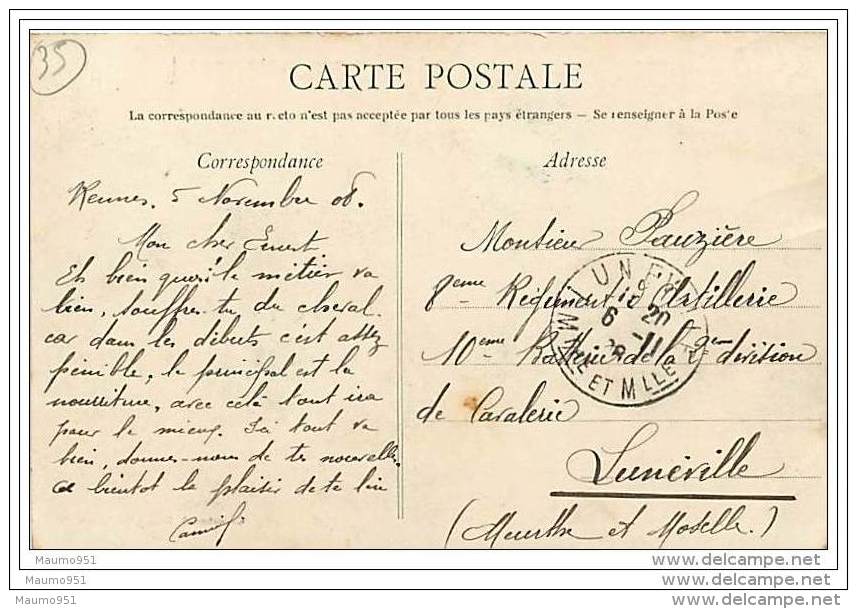 35
CARTE POSTALE
La correspondance au recto n'est pas acceptée par tous les pays étrangers — Se renseigner à la Poste
Correspondance
Rennes. 5 November 08.
Mon cher Ernest
Eh bien quoi! le métier va
bien, souffres-tu du cheval.
car dans les débuts c'est assez
pénible, le principal est la
nourriture, avec celà tout ira
pour le mieux. Ici tout va
bien, donnes-nous de tes nouvelles.
a bientot le plaisir de te lire
Adresse
Monsieur Pauzière
8eme Régiment d'Artillerie
10eme Batterie de la 2eme division
de Cavalerie
Lunéville
(Meurthe et Moselle.)
6 - 11
MTHE ET MLLE
Maumo951
Maumo951
Maumo951
delcampe.net
delcampe.net
delcampe.net